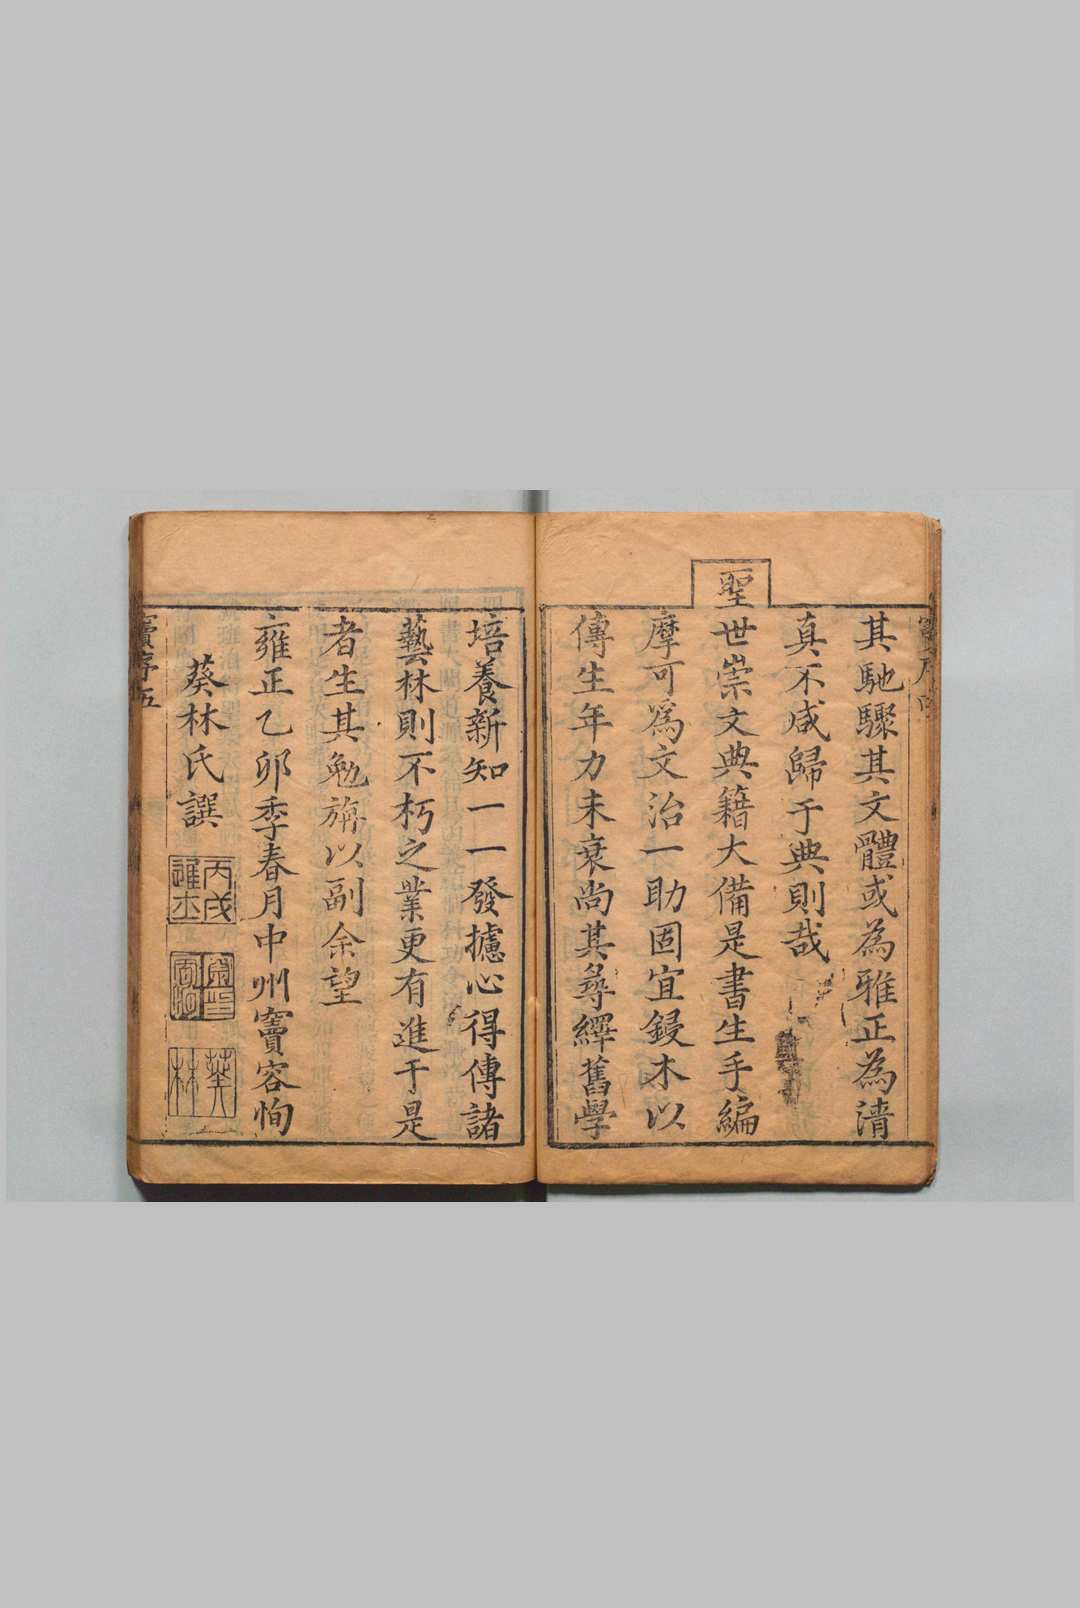 其馳驟其文體或為雅正為清
真不咸歸于典則哉
聖世崇文典籍大備是書生手編
摩可為文治一助固宜鋟木以
傳生年力未衰尚其尋繹舊學
竇序四
培養新知一一發攄心得傳諸
藝林則不朽之業更有進于是
者生其勉旃以副余望
雍正乙卯季春月中州竇容恂
葵林氏譔
丙戌進士
葵林
竇序五